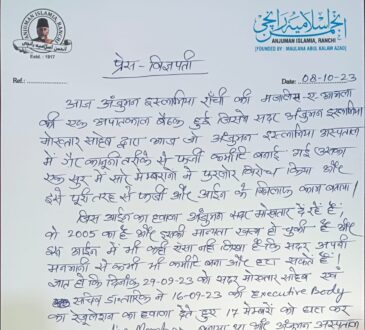 ANJUMAN ISLAMIA, RANCHI
Estd. : 1917
انجمن اسلامیہ رانچی
ANJUMAN ISLAMIA, RANCHI
(FOUNDED BY : MAULANA ABUL KALAM AZAD)
प्रेस-विज्ञप्ती
Ref.:
Date: 08-10-23
आज अंजुमन इस्लामिया राँची की मजलिस-ए-आमला
की एक आपातकाल बैठक हुई जिसमें सदर अंजुमन इस्लामिया
मोख्तार साहेब द्वारा आज जो अंजुमन इस्लामिया अस्पताल
में गैर कानूनी तरीके से फर्जी कमिटि बनाई गई उसका
एक सुर में सारे मेम्बरान ने पुरजोर विरोध किया और
इसे पूरी तरह से फर्जी और आईन के खिलाफ काम बताया।
जिस आईन का हवाला अंजुमन सदर मोख्तार दे रहे हैं
वो 2005 का है और इसकी मान्यता खत्म हो चुकी है और
उस आईन में भी कहीं ऐसा नहीं लिखा है कि सदर अपनी
मनमानी से कभी भी कमिटि बना और हटा सकते हैं।
ज्ञात हो कि दिनांक 29-09-23 को सदर मोख्तार साहेब एवं
सचिव डा० तारिक ने 16-09-23 की Executive Body
का रेजुलेशन का हवाला देते हुए 17 मेम्बरों को हटा कर
था और अंजुमन अस्पताल